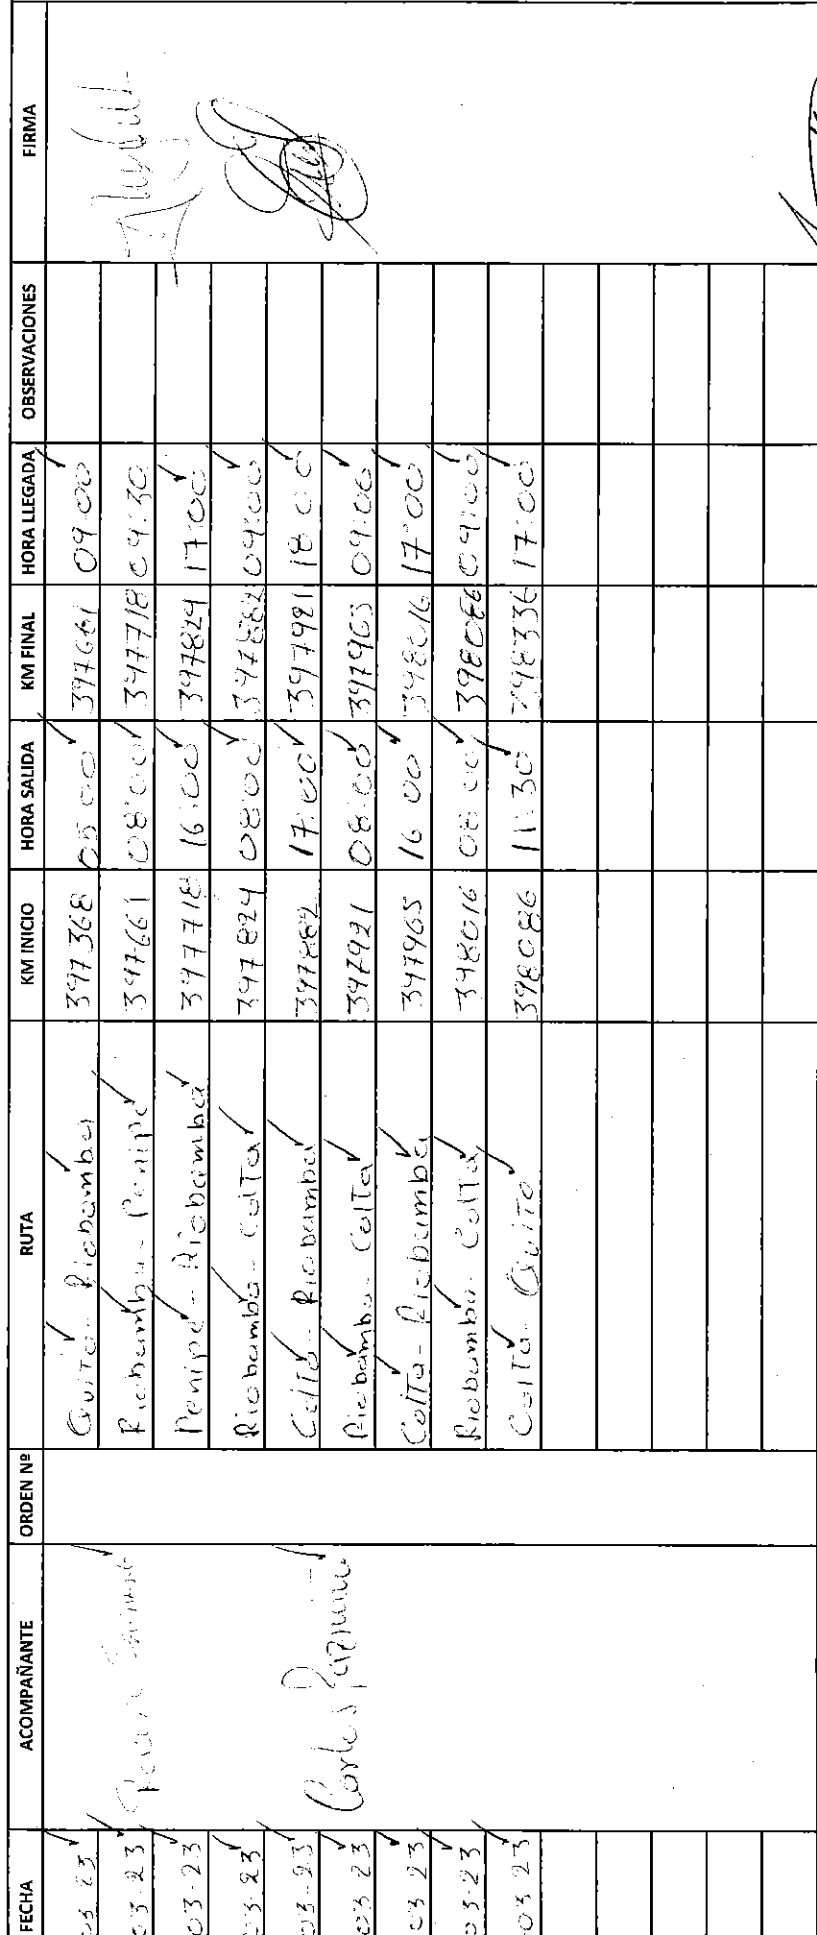 FECHA ACOMPAÑANTE ORDEN Nº RUTA KM INICIO HORA SALIDA KM FINAL HORA LLEGADA OBSERVACIONES FIRMA
03.23 Quito - Riobamba 397368 05:00 397661 09:00
03.23 Riobamba - Penipe 397661 08:00 397718 09:30
03-23 Penipe - Riobamba 397718 16:00 397824 17:00
03-23 Riobamba - Colta 397824 08:00 397882 09:00
03-23 Carlos Colta - Riobamba 397882 17:00 397921 18:00
03 23 Riobamba - Colta 397921 08:00 397965 09:00
03 23 Colta - Riobamba 397965 16 00 398016 17:00
03-23 Riobamba - Colta 398016 08 00 398086 09:00
03 23 Colta - Quito 398086 11:30 398336 17:00